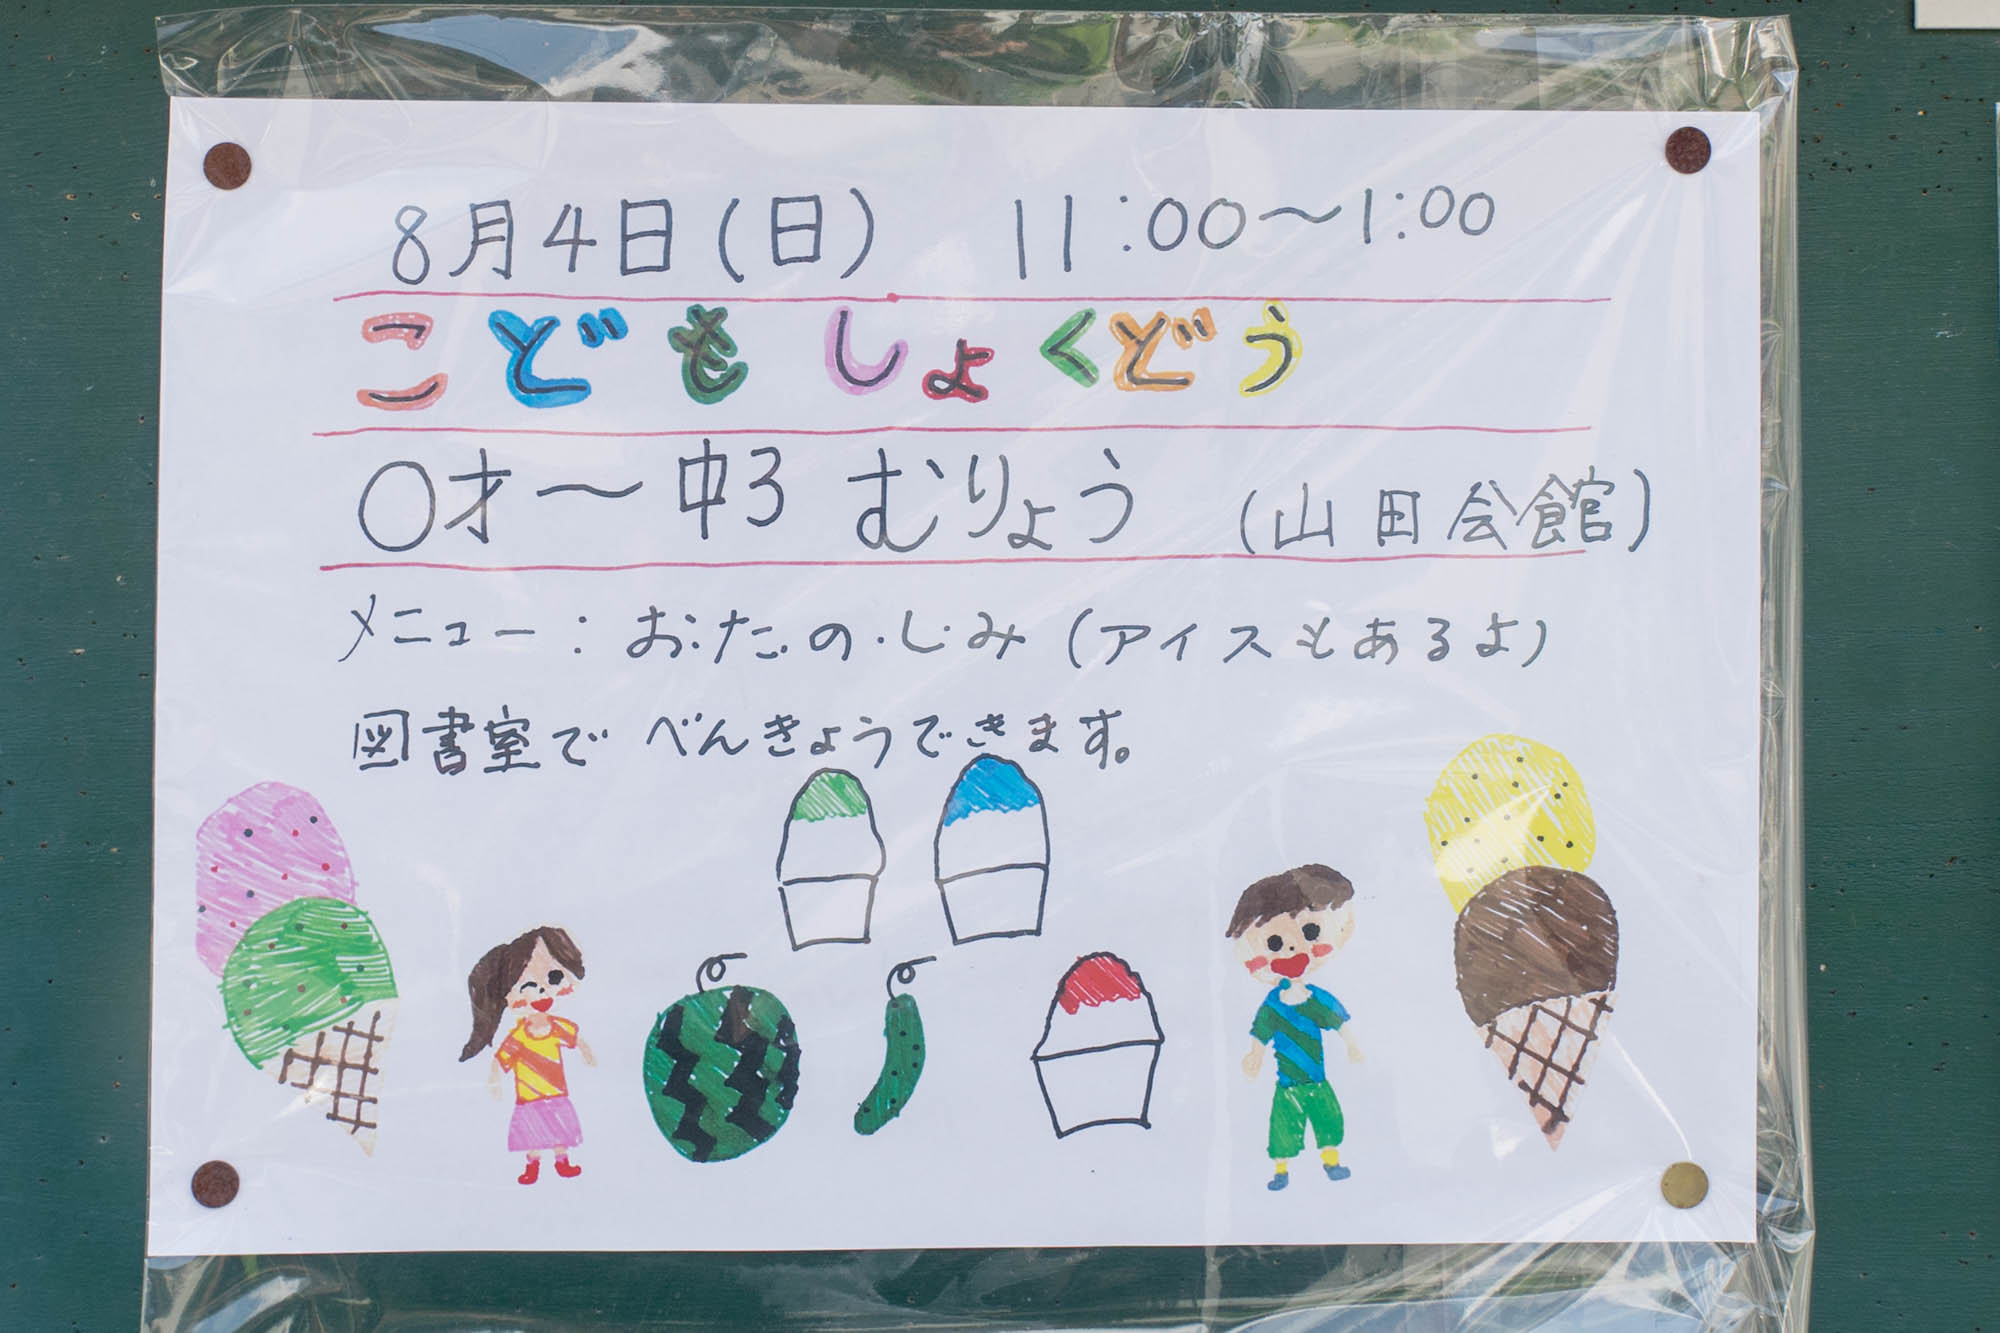 8月4日(日) 11:00〜1:00
こどもしょくどう
0才〜中3 むりょう (山田会館)
メニュー:お・た・の・し・み(アイスもあるよ)
図書室でべんきょうできます。